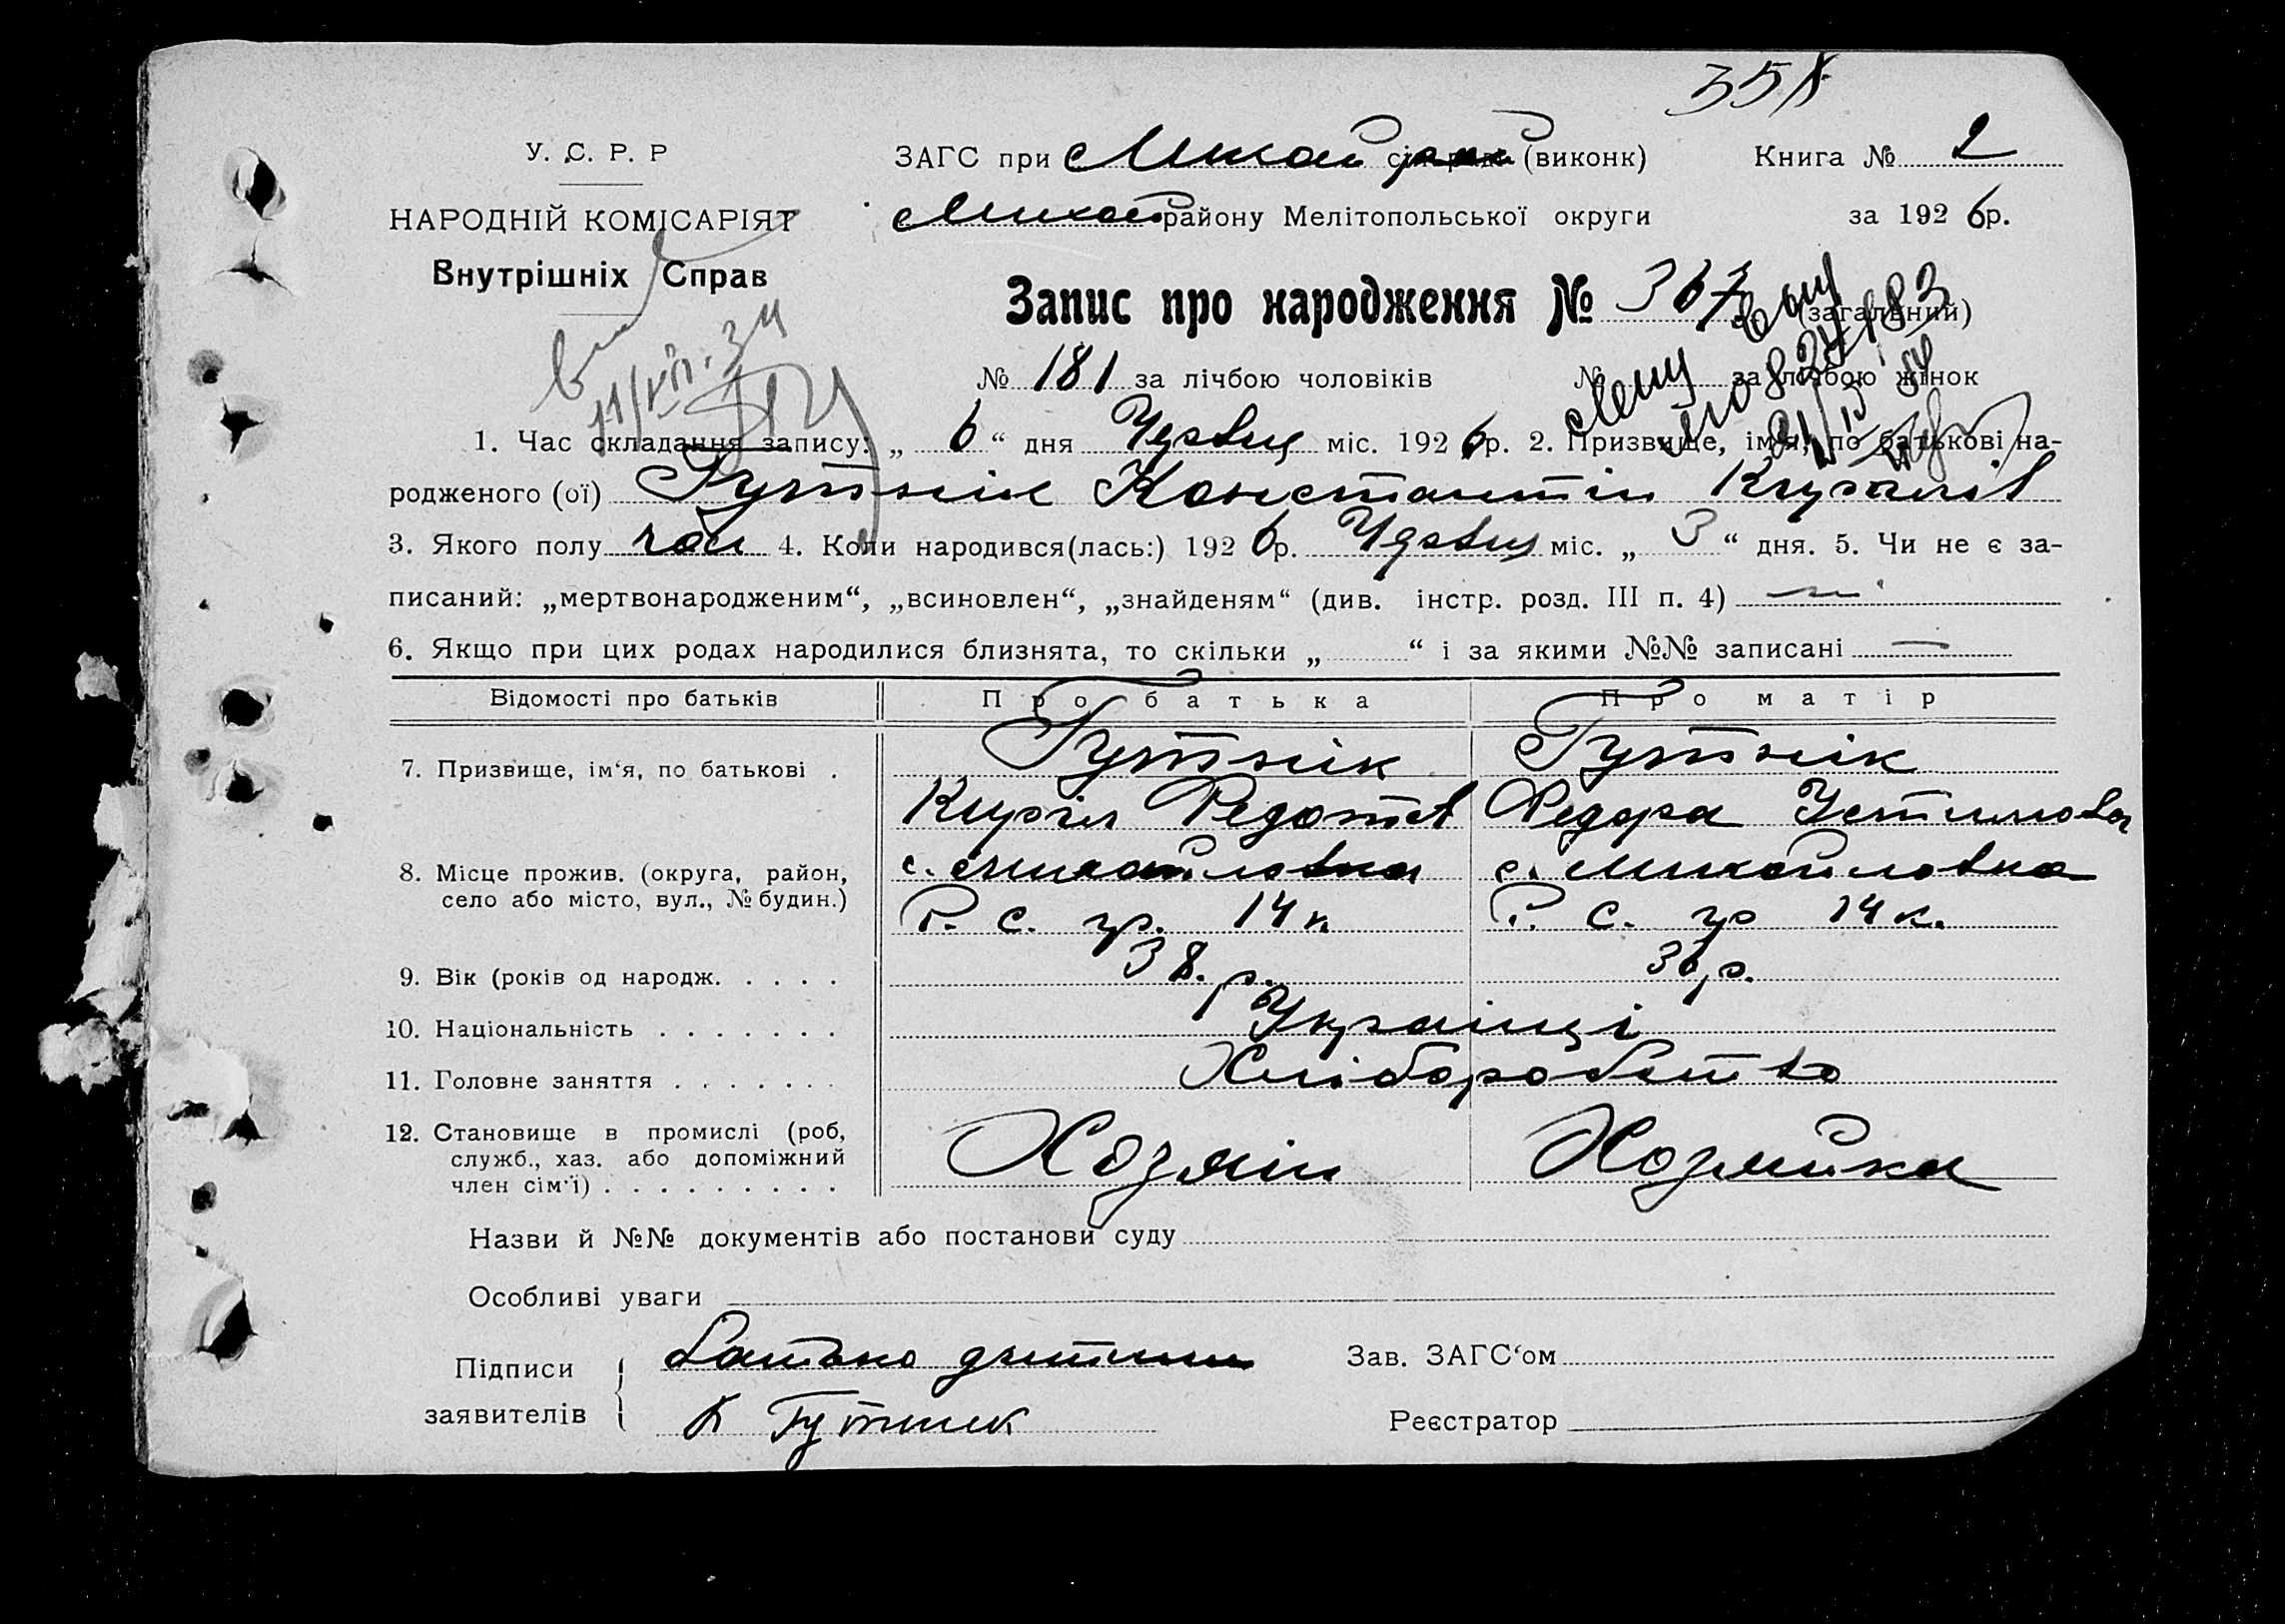 358
У. С. Р. Р
ЗАГС при Михай (виконк) Книга № 2
НАРОДНІЙ КОМІСАРІЯТ
Михай району Мелітопольської округи за 1926 р.
Внутрішніх Справ
Запис про народження № 367 (загальний)
№ 181 за лічбою чоловіків № за лічбою жінок
1. Час складання запису: „ 6 “ дня Червня міс. 1926 р. 2. Призвище, ім'я, по батькові на-
родженого (ої) Гутнік Константін Кирилів
3. Якого полу чол 4. Коли народився(лась:) 1926 р. Червня міс. „ 3 “ дня. 5. Чи не є за-
писаний: „мертвонародженим“, „всиновлен“, „знайденям“ (див. інстр. розд. III п. 4) ні
6. Якщо при цих родах народилися близнята, то скільки „ “ і за якими №№ записані —
Відомості про батьків Про батька Про матір
7. Призвище, ім‘я, по батькові . Гутнік Гутнік
Кирил Федотов Федора Устимова
8. Місце прожив. (округа, район, с. Михайловка с. Михайловка
село або місто, вул., № будин.) Р. С. гр. 14 к. Р. С. гр 14 к.
9. Вік (років од народж. . . . . 38. р. 36 р.
10. Національність . . . . . . . Українці
11. Головне заняття . . . . . . . Хліборобство
12. Становище в промислі (роб, Хозяїн Хозяйка
служб., хаз. або допоміжний
член сім'ї) . . . . . . . . .
Назви й №№ документів або постанови суду
Особливі уваги
Підписи Батько дитини Зав. ЗАГС‘ом
заявителів К Гутник Реєстратор